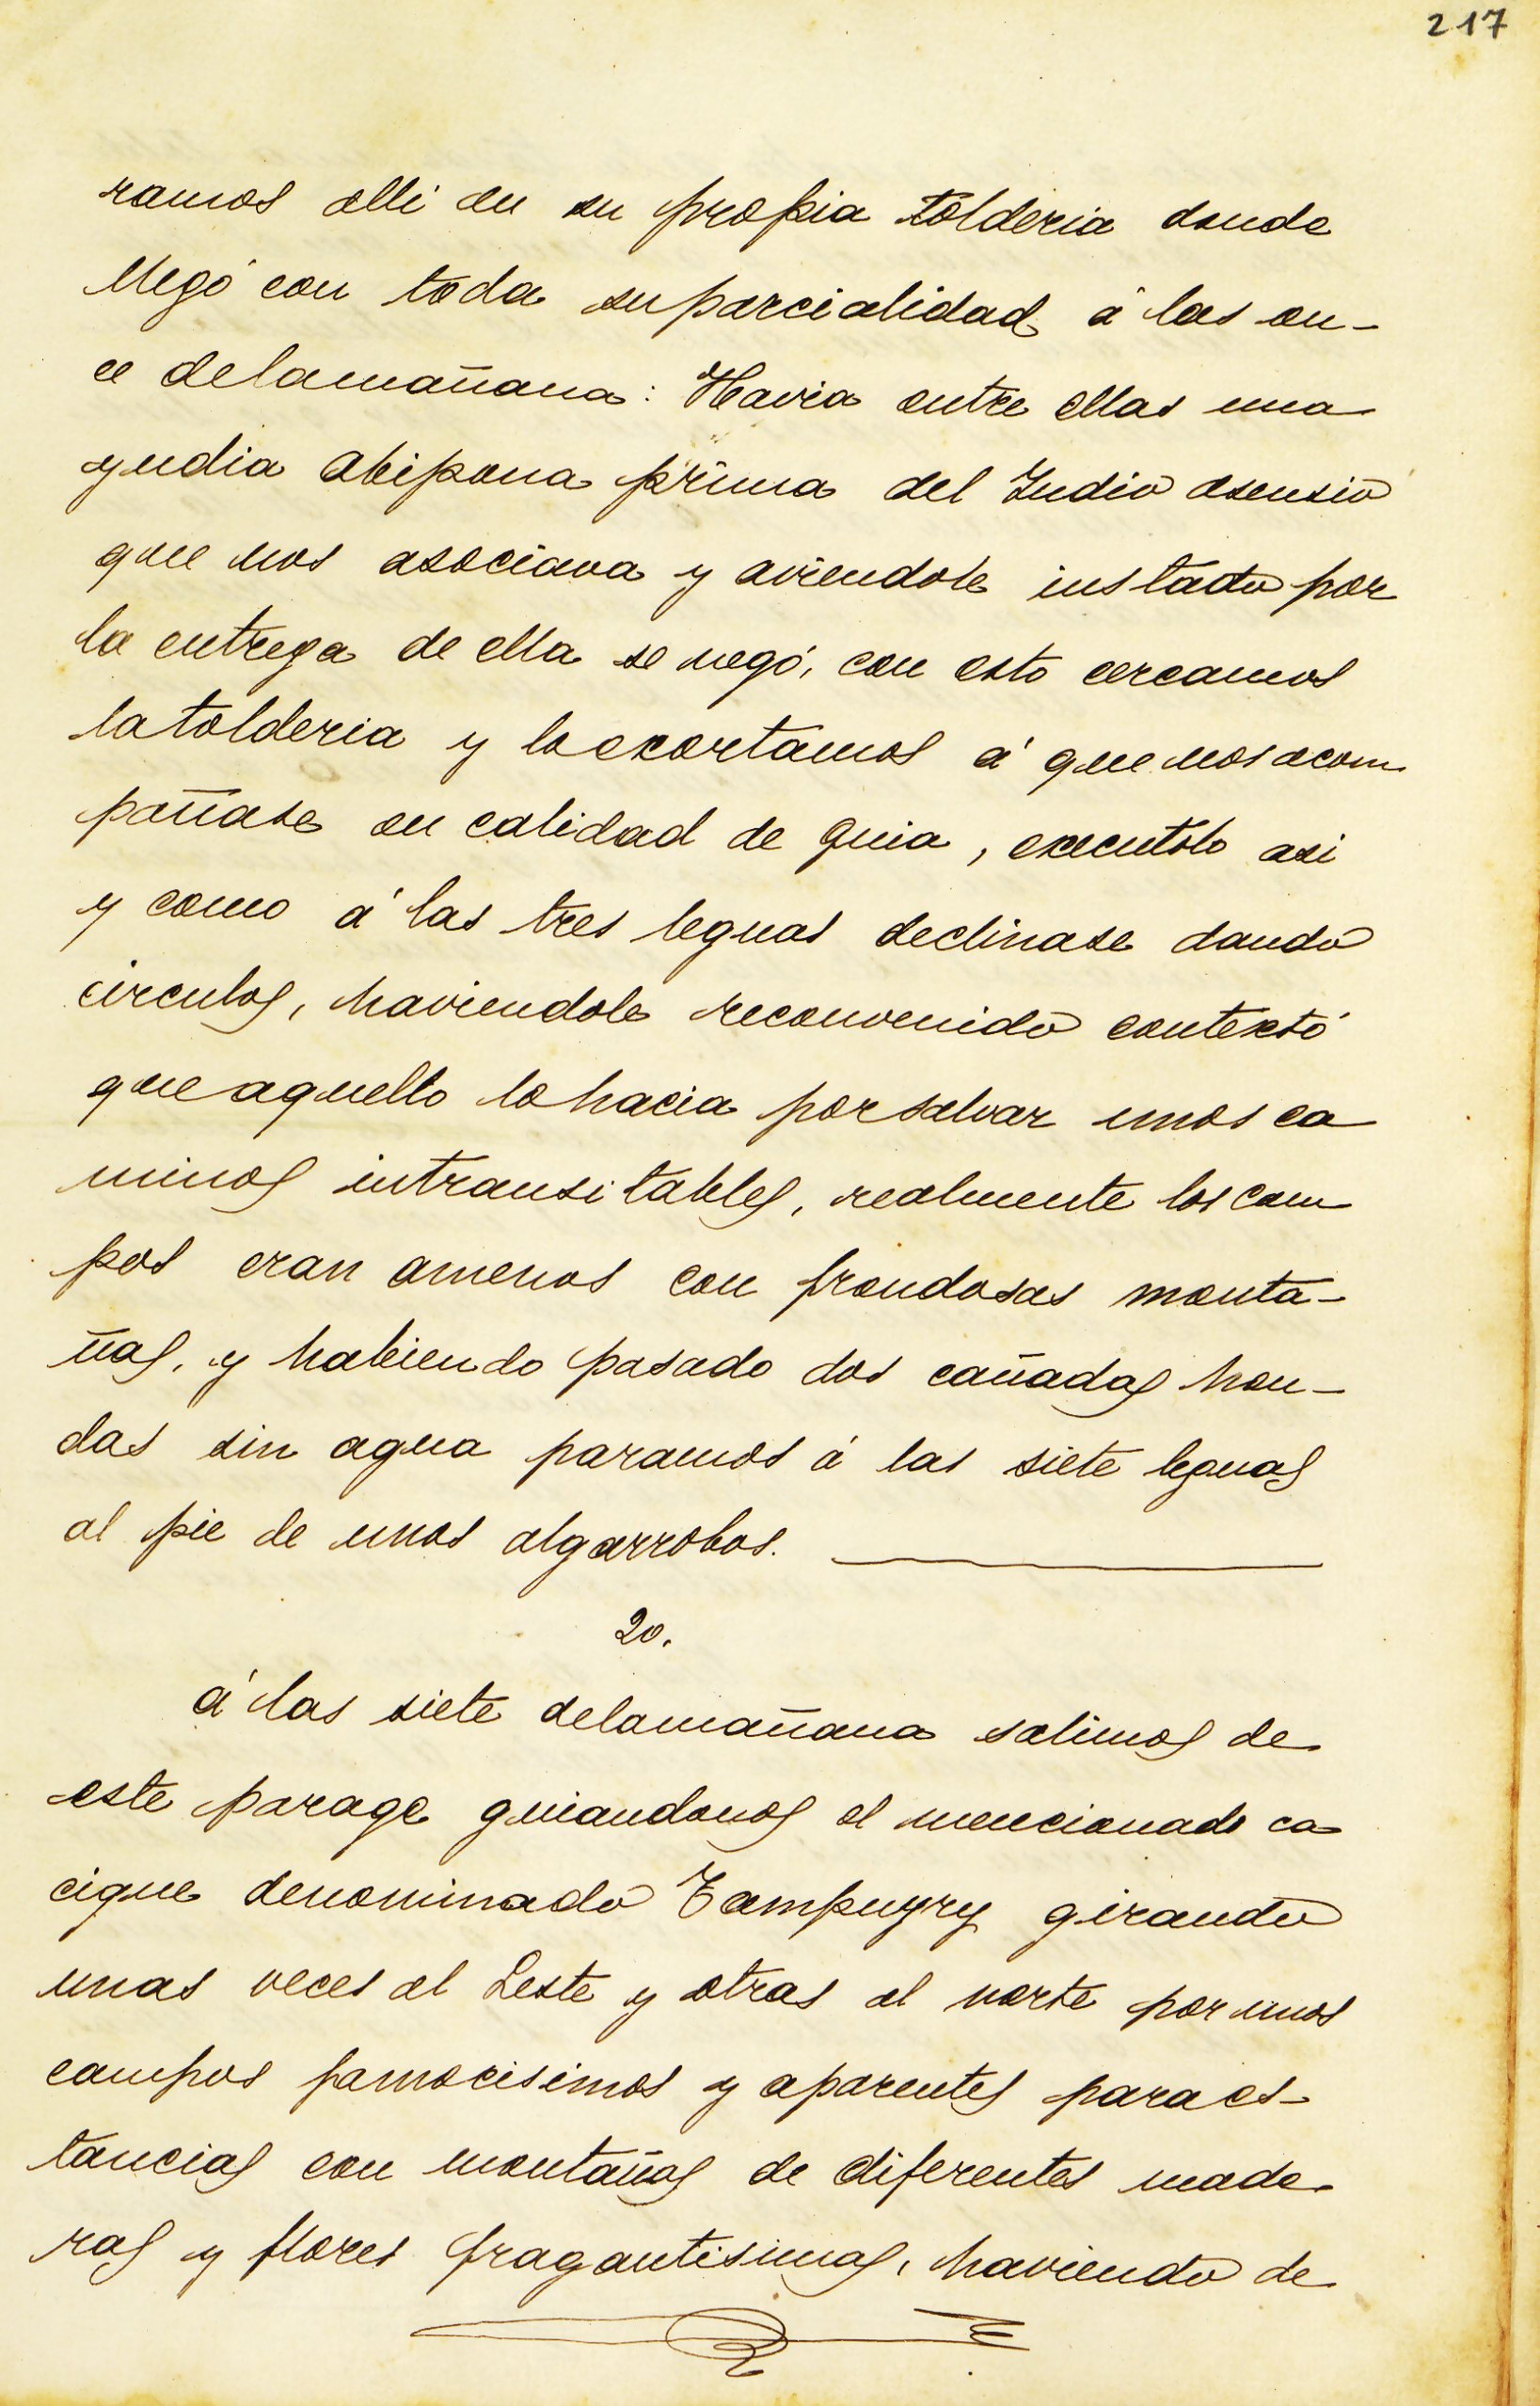 217
ramos alli en su propia tolderia donde
llegó con toda su parcialidad á las on-
ce delamañana: Havia entre ellas una
yndia abipona prima del Indio asensio
que nos asociava y aviendole instado por
la entrega de ella se negó, con esto cercamos
latolderia y loexortamos á que nos acom
pañase en calidad de guia, executolo asi
y como á las tres leguas declinase dando
circulos, haviendole reconvenido contextó
queaquello lohacia porsalvar unos ca
minos intransitables, realmente los cam
pos eran amenos con frondosas monta-
ñas, y habiendo pasado dos cañadas hon-
das sin agua paramos á las siete leguas
al pie de unos algarrobos.
20.
á las siete delamañana salimos de
este parage guiandonos el mencionado ca
cique denominado Tampuyry girando
unas veces al Leste y otras al norte por unos
campos famocisimos y aparentes paraes-
tancias con montañas de diferentes made
ras y flores fragantisimas, haviendo de